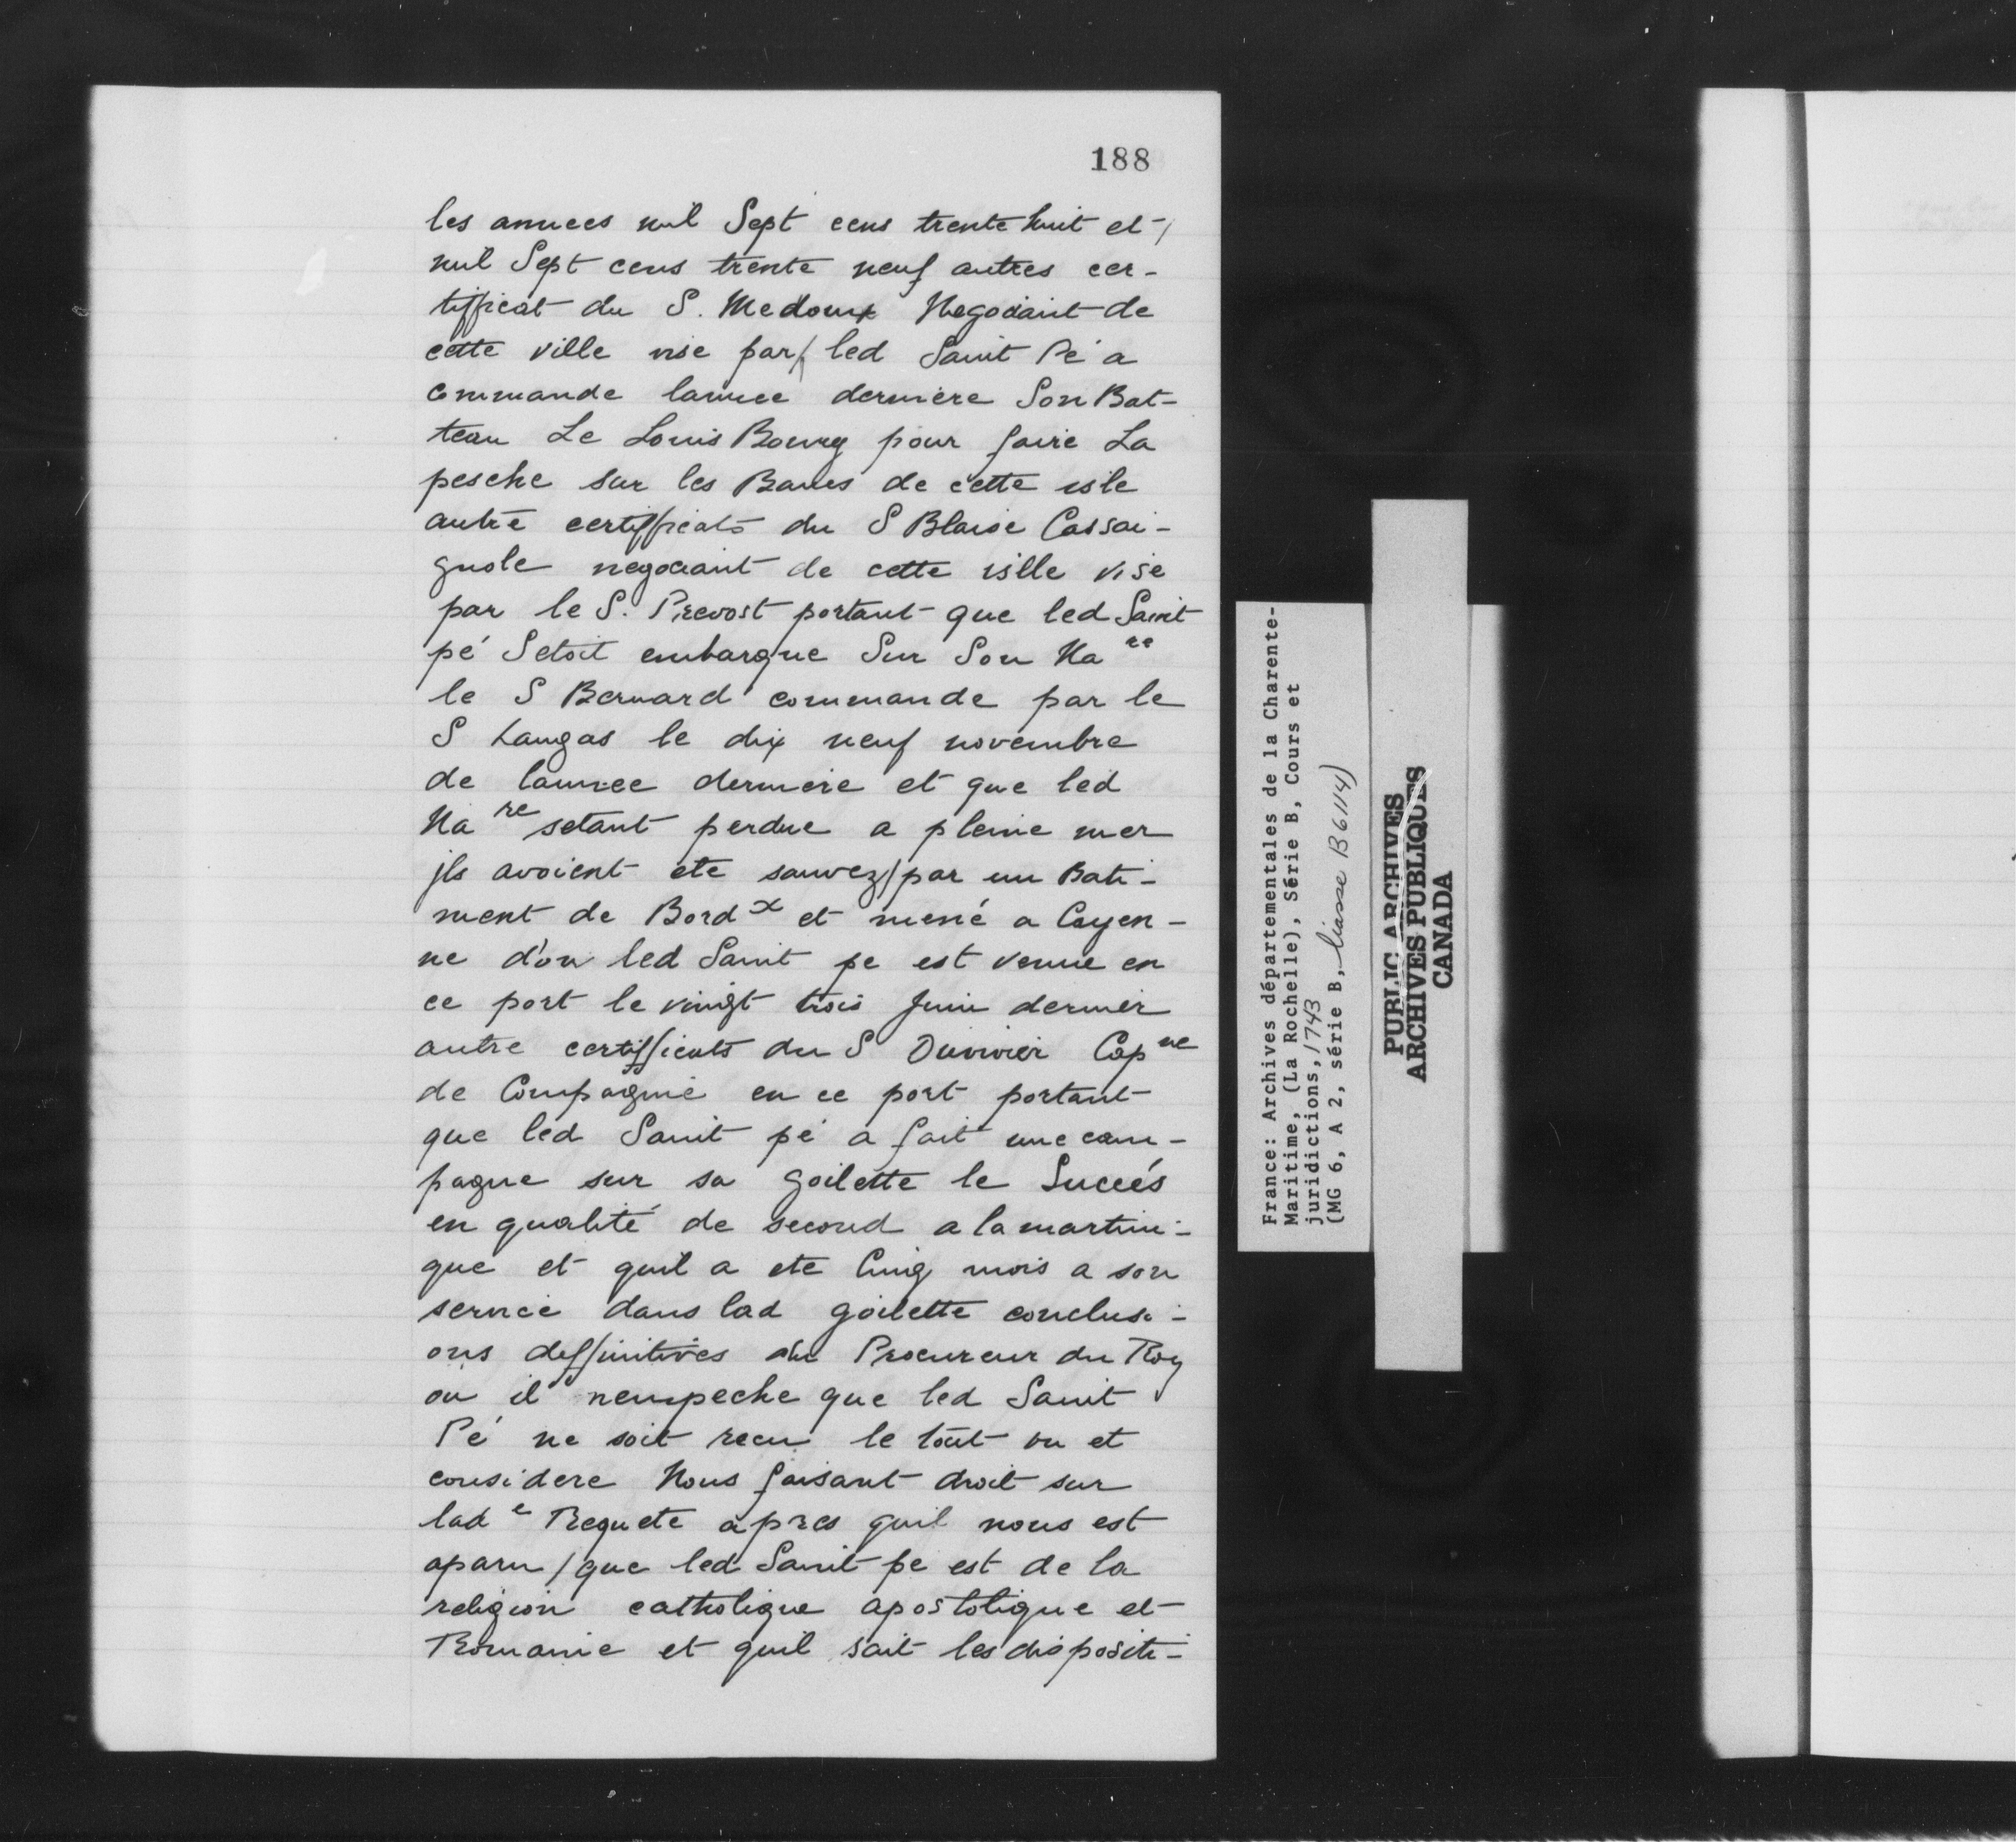 188
les annees mil Sept cens trente huit et /
mil Sept cens trente neuf autres cer-
tifficat du S. Medoux Negociant de
cette ville vise par / led Saint Pé a
commande lannee derniere Son Bat-
teau Le Louis Bourg pour faire La
pesche sur les Bancs de cette isle
autre certifficats du S Blaise Cassai-
gnole negociant de cette ville vise
par le S. Prevost portant que led Saint
pé Setoit embarque Sur Son Na re
le S Bernard commande par le
S Laugas le dix neuf novembre
de lannee derniere et que led
Na re setant perdue a pleine mer
jls avoient ete sauvez / par un Bati-
ment de Bord x et mené a Cayen-
ne d'ou led Saint pe est venue en
ce port le vingt trois Juin dernier
autre certifficats du S Duvivier Cap ne
de Compagnie en ce port portant
que led Saint pé a fait une cam-
pagne sur sa goilette le Succés
en qualité de second a la martini-
que et quil a ete Cinq mois a son
service dans lad goilette conclusi-
ons deffinitives du Procureur du Roy
ou il nempeche que led Saint
Pé ne soit recu le tout vu et
considere Nous faisant droit sur
lad e Requete apres quil nous est
aparu / que led Saint pe est de la
religion catholique apostolique et
Romaine et quil sait les dispositi-
France: Archives départementales de la Charente-
Maritime, (La Rochelle), Série B, Cours et
juridictions, 1743
(MG 6, A 2, série B, liasse B6114)
PUBLIC ARCHIVES
ARCHIVES PUBLIQUES
CANADA